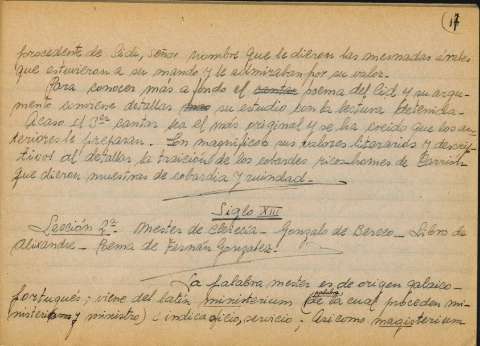 17
procedente de Sidi, señor nombre que le dieron las mesnadas árabes
que estuvieron a su mando y le admiraban por su valor.
Para conocer más a fondo el cantar poema del Cid y su argu-
mento conviene detallar su estudio con la lectura detenida.
Acaso el 3er cantar sea el más original y se ha creido que los an-
teriores le preparan. Son magnificos sus valores literarios y descrip-
tivos al detallar la traicion de los cobardes ricos-homes de Carrión
que dieron muestras de cobardia y ruindad.
Siglo XIII
Lección 2ª. Mester de Clerecía - Gonzalo de Berceo - Libro de
Alixandre - Poema de Fernán González.
La palabra mester es de origen galaico-
portugués; viene del latín ministerium (palabra de la cual proceden mi-
nisterio y ministro) e indica oficio, servicio; Asi como magisterium